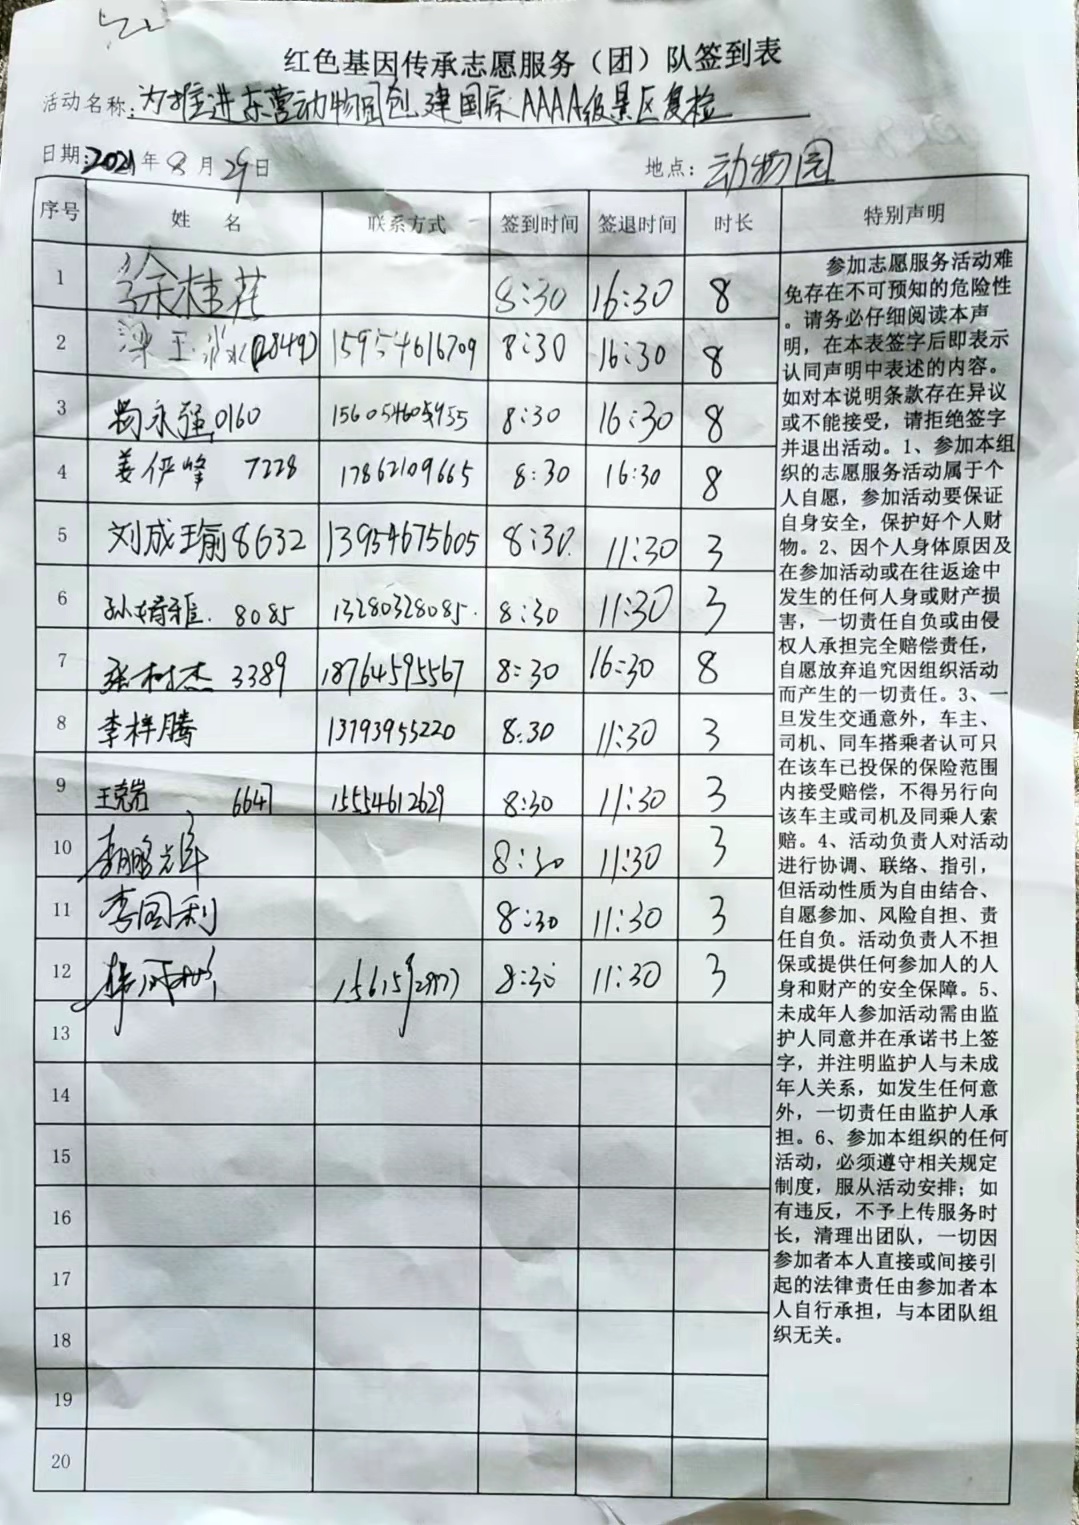 红色基因传承志愿服务（团）队签到表
活动名称：为推进东营动物园创建国家AAAA级景区复检
日期：2021年8月29日 地点：动物园
序号 姓 名 联系方式 签到时间 签退时间 时长 特别声明
1 徐桂花 8:30 16:30 8
2 梁玉 (2849) 15954616709 8:30 16:30 8
3 永强 0160 15605460 8:30 16:30 8
4 姜伊峰 7228 17862109665 8:30 16:30 8
5 刘成瑜 8632 13954675605 8:30 11:30 3
6 孙靖雅 8085 13280328085 8:30 11:30 3
7 张树杰 3389 18764595567 8:30 16:30 8
8 李梓腾 13793955220 8:30 11:30 3
9 王克岩 6647 15554612629 8:30 11:30 3
10 8:30 11:30 3
11 李国利 8:30 11:30 3
12 8:30 11:30 3
13
14
15
16
17
18
19
20
参加志愿服务活动难
免存在不可预知的危险性
。请务必仔细阅读本声
明，在本表签字后即表示
认同声明中表述的内容。
如对本说明条款存在异议
或不能接受，请拒绝签字
并退出活动。1、参加本组
织的志愿服务活动属于个
人自愿，参加活动要保证
自身安全，保护好个人财
物。2、因个人身体原因及
在参加活动或在往返途中
发生的任何人身或财产损
害，一切责任自负或由侵
权人承担完全赔偿责任，
自愿放弃追究因组织活动
而产生的一切责任。3、一
旦发生交通意外，车主、
司机、同车搭乘者认可只
在该车已投保的保险范围
内接受赔偿，不得另行向
该车主或司机及同乘人索
赔。4、活动负责人对活动
进行协调、联络、指引，
但活动性质为自由结合、
自愿参加、风险自担、责
任自负。活动负责人不担
保或提供任何参加人的人
身和财产的安全保障。5、
未成年人参加活动需由监
护人同意并在承诺书上签
字，并注明监护人与未成
年人关系，如发生任何意
外，一切责任由监护人承
担。6、参加本组织的任何
活动，必须遵守相关规定
制度，服从活动安排；如
有违反，不予上传服务时
长，清理出团队，一切因
参加者本人直接或间接引
起的法律责任由参加者本
人自行承担，与本团队组
织无关。